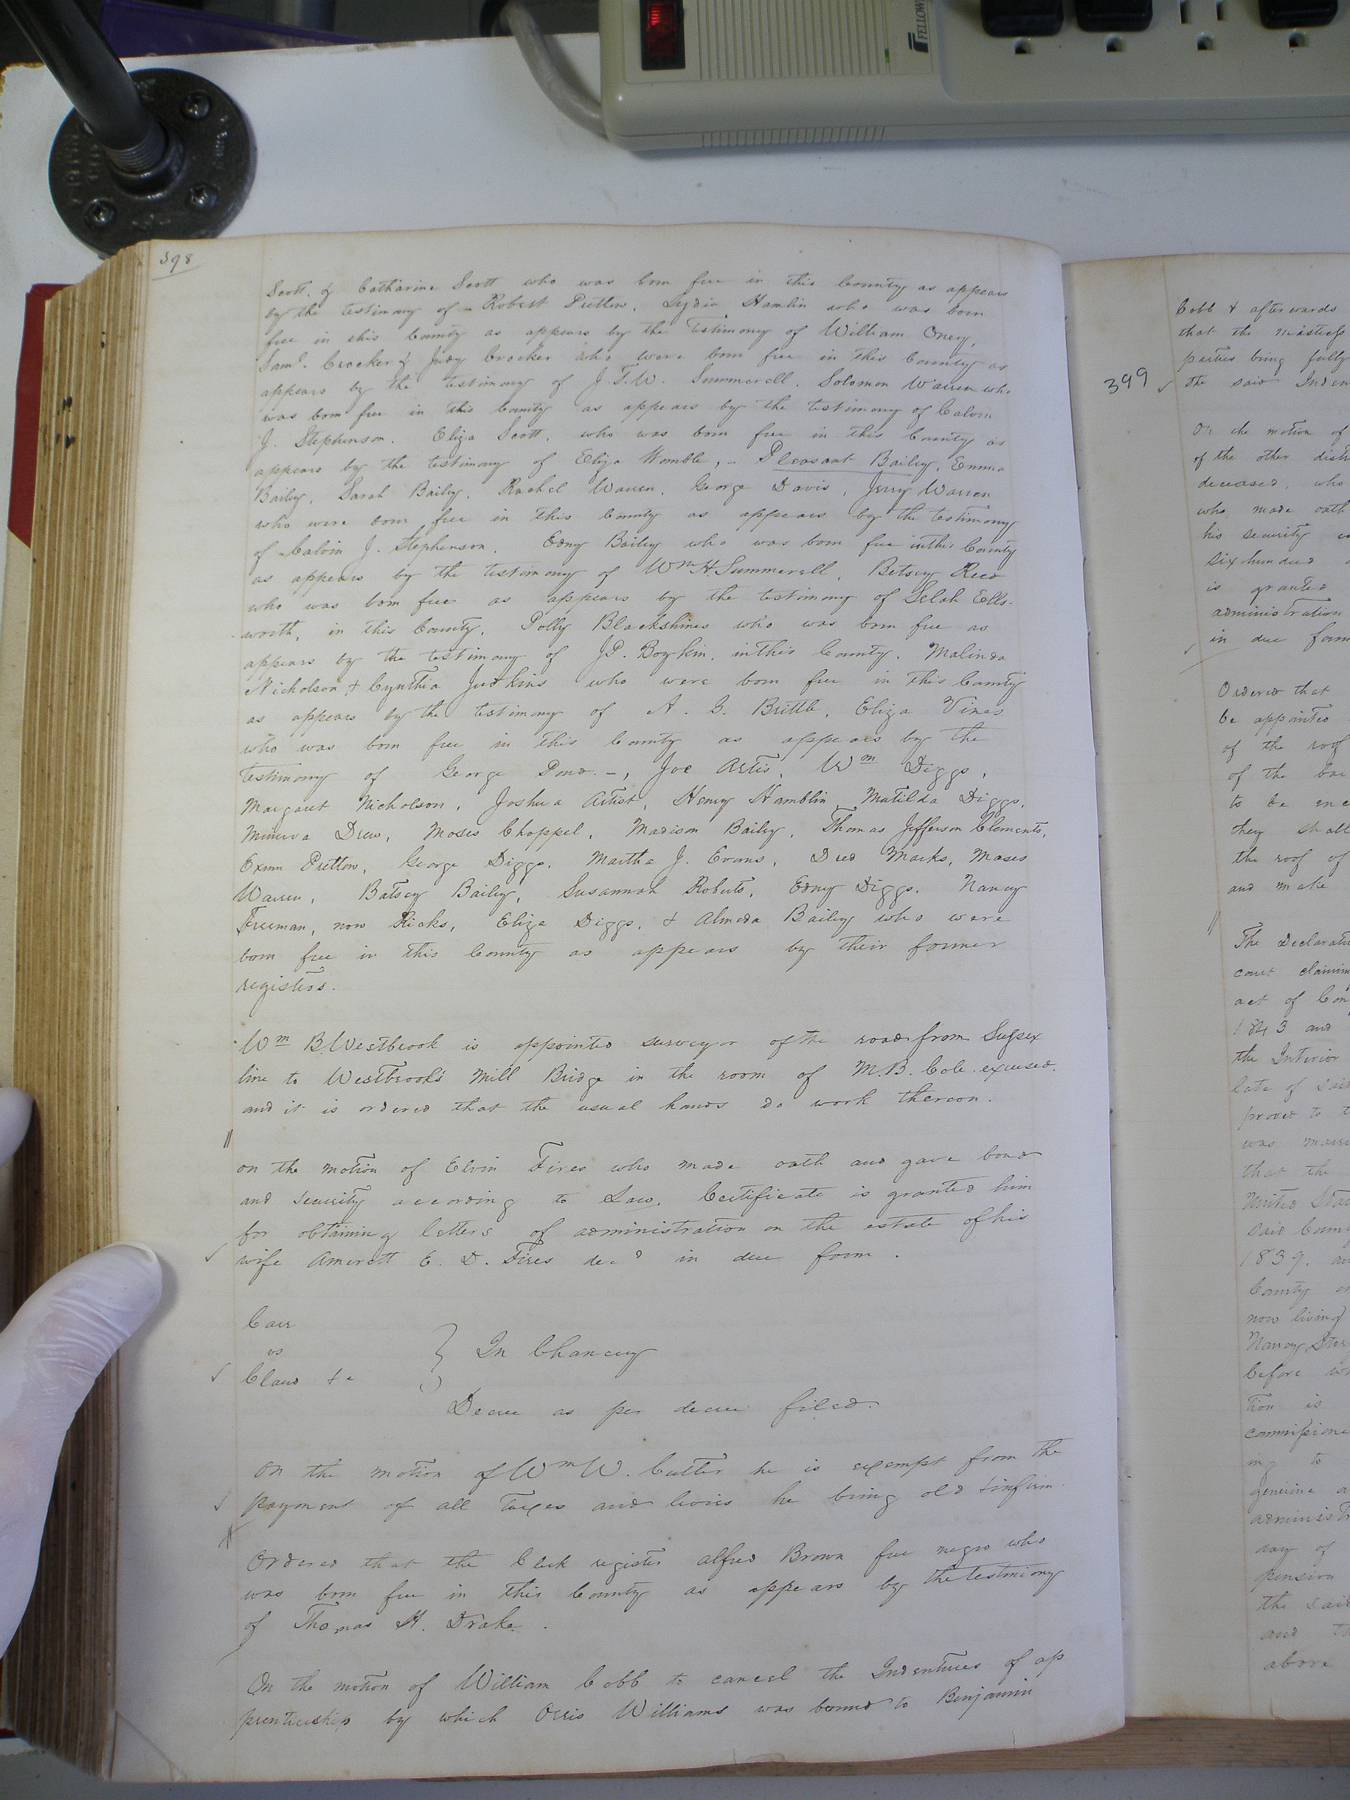 FELLOW
398
Scott, & Catharine Scott who was born free in this County as appears
by the testimony of Robert Pretlow, Lydia Hamlin who was born
free in this County as appears by the Testimony of William Oney,
Saml. Crocker & Judy Crocker who were born free in this County as
appears by the testimony of J.T.W. Summerell. Solomon Warren who
was born free in this County as appears by the testimony of Calvin
J. Stephenson. Eliza Scott, who was born free in this County as
appears by the testimony of Eliza Womble, - Pleasant Bailey, Emma
Bailey, Sarah Bailey, Rachel Warren, George Davis, Jerry Warren
who were born free in this County as appears by the testimony
of Calvin J. Stephenson. Edny Bailey who was born free in this County
as appears by the testimony of Wm H. Summerell, Betsey Reed
who was born free as appears by the testimony of Selah Ells-
worth, in this County. Polly Blackshines who was born free as
appears by the testimony of J.P. Boykin, in this County. Malinda
Nicholson & Cynthia Judkins who were born free in this County
as appears by the testimony of A. G. Brittle, Eliza Vines
who was born free in this County as appears by the
testimony of George Pond. -, Joe Artis, Wm Diggs,
Margaret Nicholson, Joshua Artist, Henry Hamblin, Matilda Diggs,
Minerva Drew, Moses Choppel, Madison Bailey, Thomas Jefferson Clements,
Exum Pretlow, George Diggs, Martha J. Evans, Dred Marks, Moses
Warren, Batsey Bailey, Susannah Roberts, Edny Diggs, Nancy
Freeman, now Ricks, Eliza Diggs, & Almeda Bailey who were
born free in this County as appears by their former
registers.
Wm B. Westbrook is appointed surveyor of the road from Sussex
line to Westbrook's Mill Bridge in the room of M.B. Cole excused.
and it is ordered that the usual hands do work thereon.
On the motion of Elvin Fires who made oath and gave bond
and security according to Law, Certificate is granted him
for obtaining letters of administration on the estate of his
wife E. D. Fires decd in due form.
Carr
vs
Claud &c
In Chancery
Decree as per decree filed.
On the motion of Wm W. Cutler he is exempt from the
payment of all Taxes and levies he being old & infirm.
Ordered that the Clerk register Alfred Brown free negro who
was born free in this County as appears by the testimony
of Thomas H. Drake.
On the motion of William Cobb to cancel the Indentures of ap
prenticeship by which Orris Williams was bound to Benjamin
399
Cobb & afterwards
that the mistress
parties being fully
the said Inden
On the motion of
of the other distr
deceased, who
who, made oath
his security
six hundred
is granted
administration
in due form
Ordered that
be appointed
of the roof
of the
to be
they shall
the roof of
and make
The Declarati
court claimin
act of Con
1843 and
the Interior
late of said
proved to t
was marri
that the
United Sta
said Coun
1839, an
County
now living
Nancy
before
tion is
commissione
to
genuine
administr
day of
pension
the said
and th
above